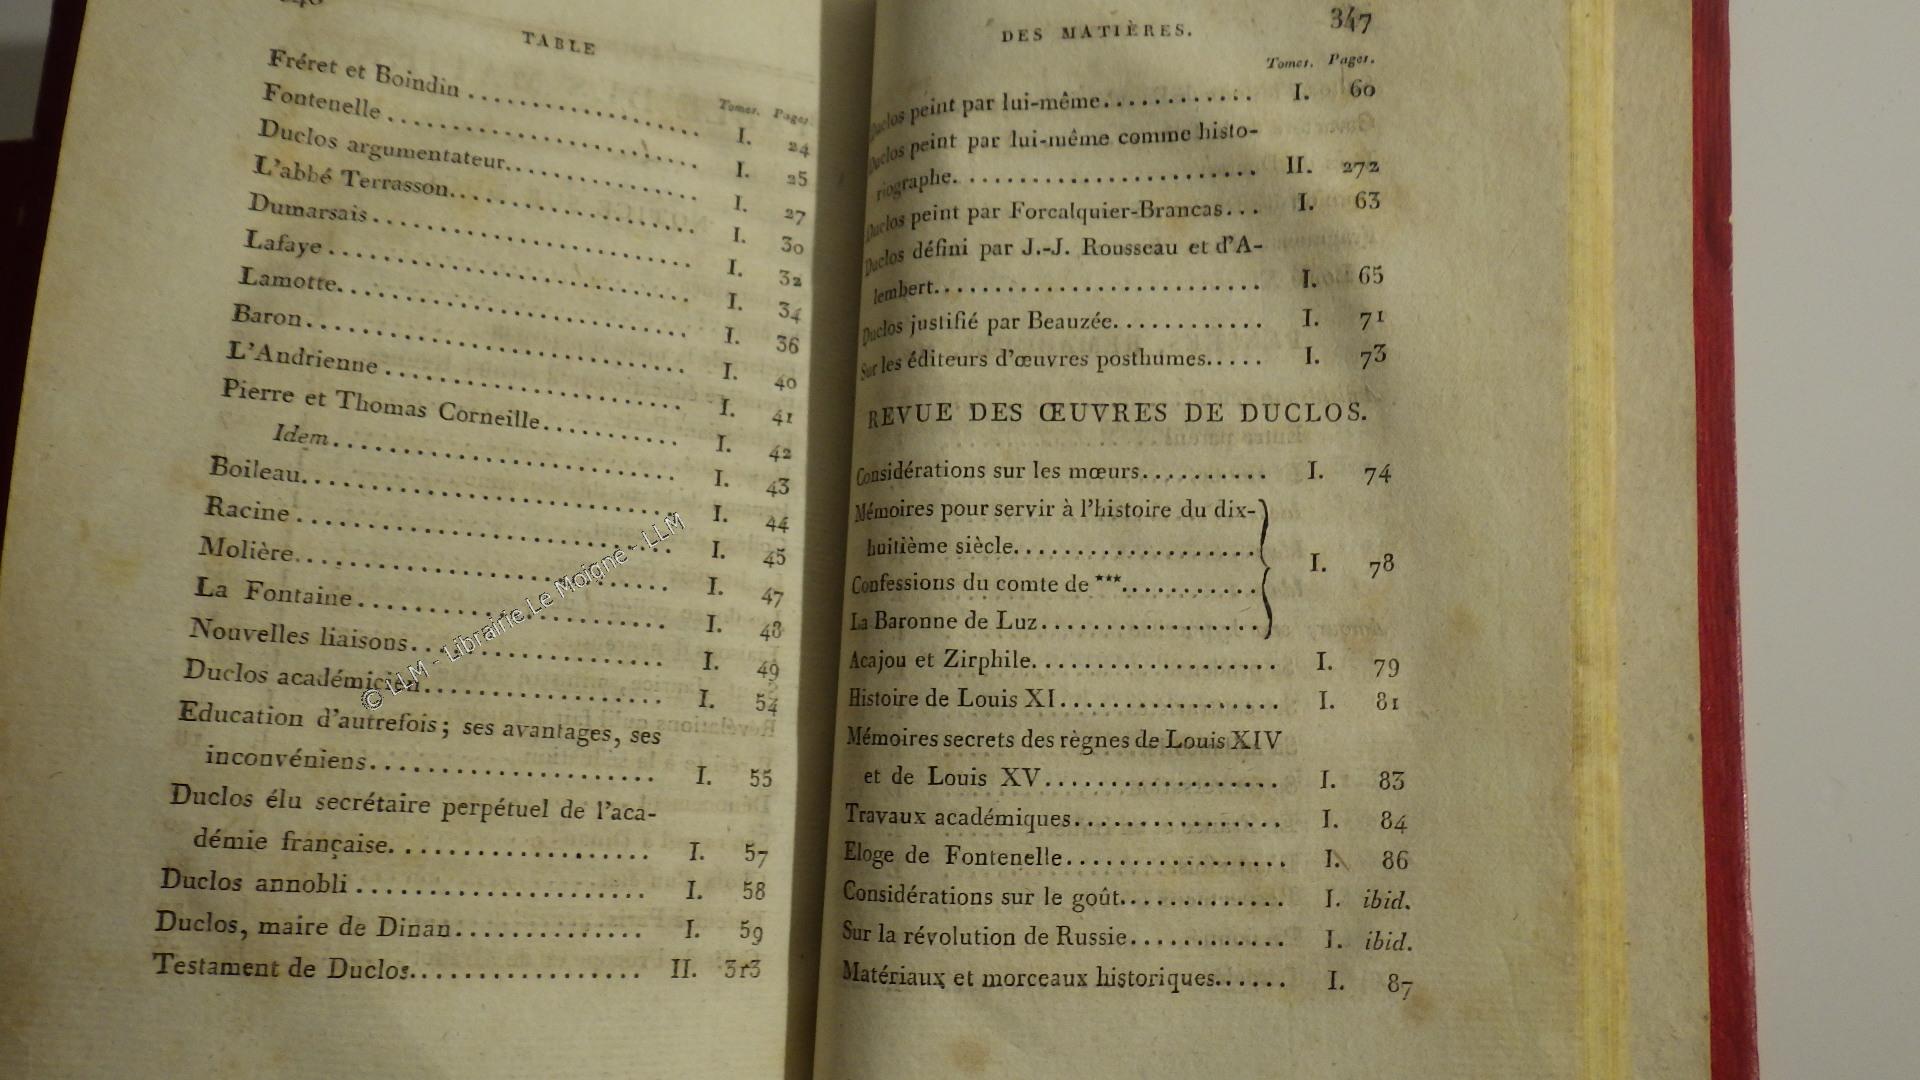 TABLE
Tomes. Pages.
Fréret et Boindin .................... I. 24
Fontenelle .......................... I. 25
Duclos argumentateur................ I. 27
L'abbé Terrasson.................... I. 30
Dumarsais .......................... I. 32
Lafaye ............................. I. 34
Lamotte............................. I. 36
Baron............................... I. 40
L'Andrienne ........................ I. 41
Pierre et Thomas Corneille........... I. 42
Idem............................... I. 43
Boileau............................. I. 44
Racine ............................. I. 45
Molière............................. I. 47
La Fontaine ........................ I. 48
Nouvelles liaisons.................. I. 49
Duclos académicien.................. I. 54
Education d'autrefois; ses avantages, ses
inconvéniens........................ I. 55
Duclos élu secrétaire perpétuel de l'aca-
démie française..................... I. 57
Duclos annobli ..................... I. 58
Duclos, maire de Dinan.............. I. 59
Testament de Duclos................. II. 313
© LLM - Librairie Le Moigne - LLM
DES MATIÈRES. 347
Tomes. Pages.
Duclos peint par lui-même............ I. 60
Duclos peint par lui-même comme histo-
riographe........................... II. 272
Duclos peint par Forcalquier-Brancas... I. 63
Duclos défini par J.-J. Rousseau et d'A-
lembert............................. I. 65
Duclos justifié par Beauzée............ I. 71
Sur les éditeurs d'œuvres posthumes..... I. 73
REVUE DES ŒUVRES DE DUCLOS.
Considérations sur les mœurs.......... I. 74
Mémoires pour servir à l'histoire du dix-
huitième siècle.....................
Confessions du comte de ***........... I. 78
La Baronne de Luz..................
Acajou et Zirphile................... I. 79
Histoire de Louis XI................. I. 81
Mémoires secrets des règnes de Louis XIV
et de Louis XV..................... I. 83
Travaux académiques................ I. 84
Eloge de Fontenelle................. I. 86
Considérations sur le goût............. I. ibid.
Sur la révolution de Russie............ I. ibid.
Matériaux et morceaux historiques...... I. 87